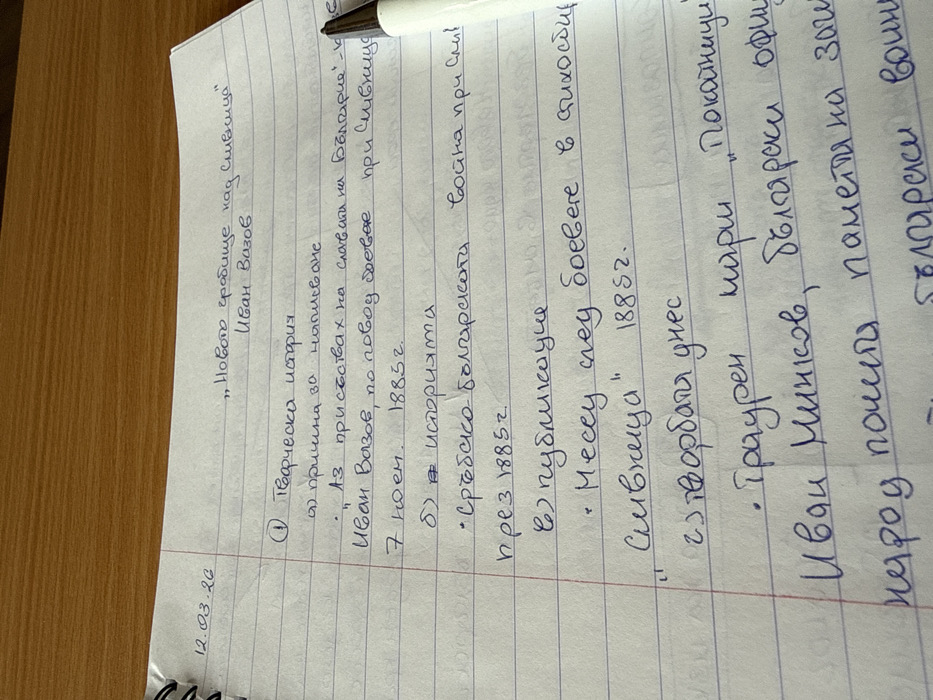 12.03.26
„Новото гробище над Сливница"
Иван Вазов
① Творческа история
а) причина за написване
• „Аз присъствах на славата на България" -
Иван Вазов, по повод боеве при Сливница
7 ноем. 1885г.
б) историята
• Сръбско-българската война при
през 1885г.
в) публикация
• Месец след боевете в
„Сливница" 1885г.
г) творбата днес
• Траурен марш „Покойници
Иван Минков, български
народ почита паметта на
български воини